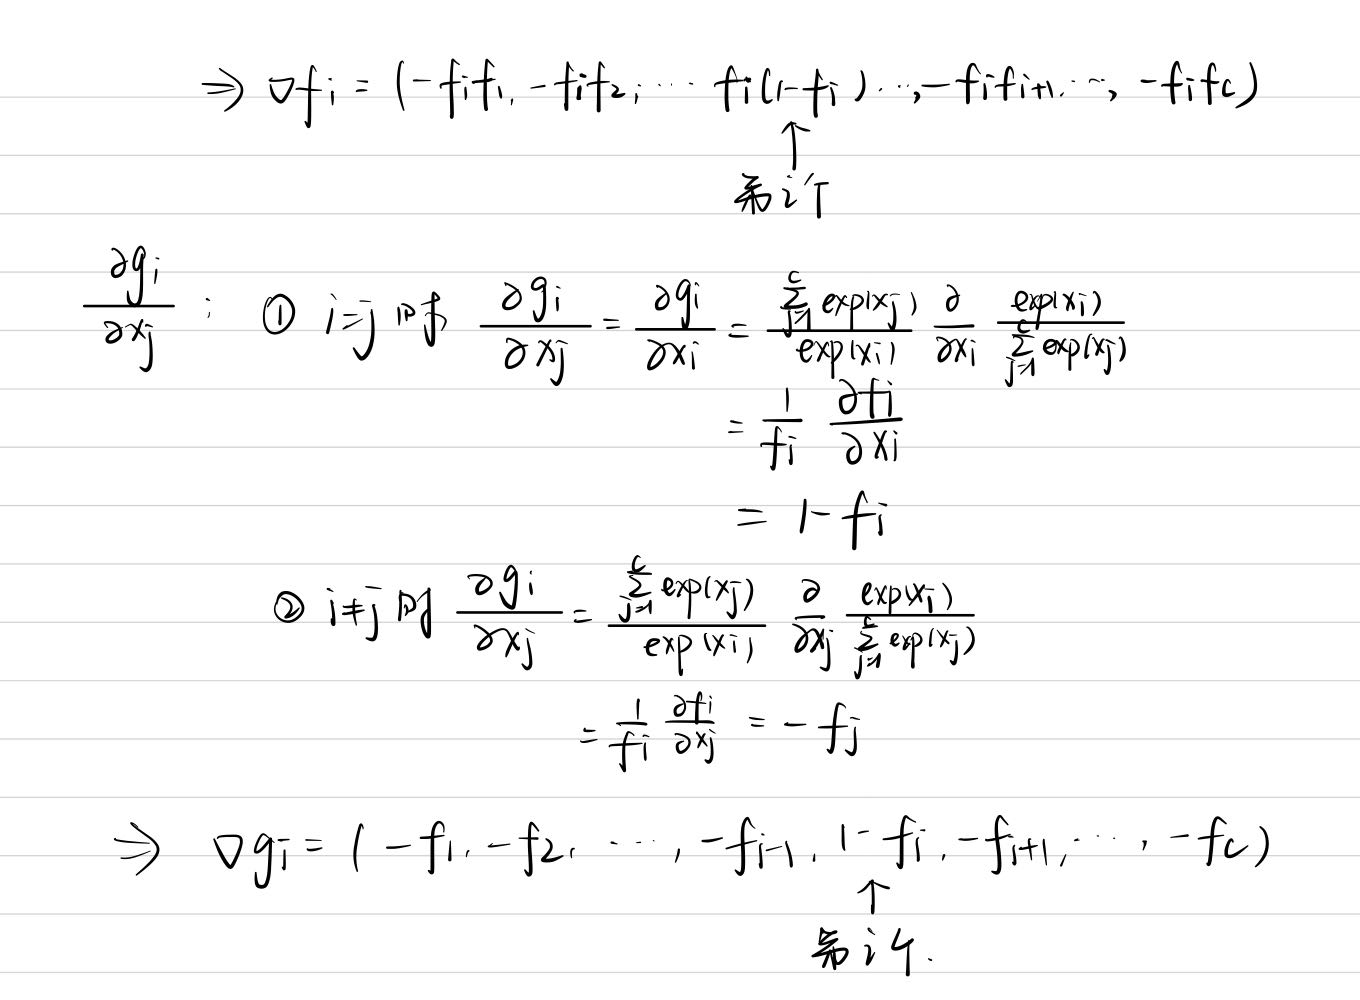 ⇒ ∇fᵢ = (-fᵢf₁, -fᵢf₂, ⋯ fᵢ(1-fᵢ) ⋯, -fᵢfᵢ₊₁, ⋯, -fᵢf_c)
↑
第i个
∂gᵢ/∂xⱼ : ① i=j 时 ∂gᵢ/∂xⱼ = ∂gᵢ/∂xᵢ = (∑_{j=1}^{c} exp(xⱼ))/(exp(xᵢ)) ∂/∂xᵢ (exp(xᵢ))/(∑_{j=1}^{c} exp(xⱼ))
= 1/fᵢ ∂fᵢ/∂xᵢ
= 1-fᵢ
② i≠j 时 ∂gᵢ/∂xⱼ = (∑_{j=1}^{c} exp(xⱼ))/(exp(xᵢ)) ∂/∂xⱼ (exp(xᵢ))/(∑_{j=1}^{c} exp(xⱼ))
= 1/fᵢ ∂fᵢ/∂xⱼ = -fⱼ
⇒ ∇gᵢ = (-f₁, -f₂, ⋯, -fᵢ₋₁, 1-fᵢ, -fᵢ₊₁, ⋯, -f_c)
↑
第i个.